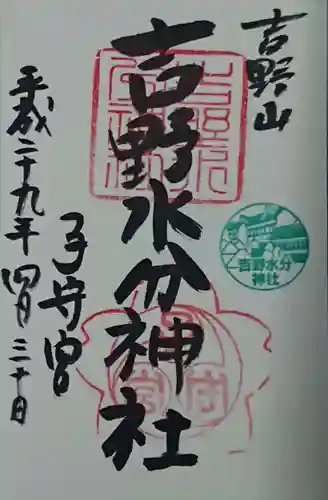 吉野山
吉野水分神社
子守宮
平成二十九年四月三十日
吉野水分
神社